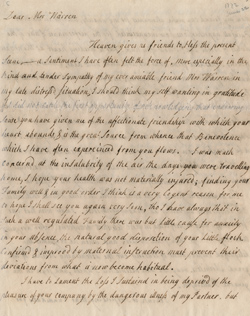 Dear Mrs Warren
Heaven gives us friends to bless the present
Scene — a Sentiment I have often felt the force of, more especially in the
kind and tender Sympathy of my ever amiable friend Mrs Warren in
my late distress'd Situation, & should think myself wanting in gratitude
did I not the first opportunity acknowledge the
have you have given me of the affectionate friendship with which your
heart abounds & to the great Source from whence that Benevolence
which I have often experienced from you flows. I was much
concerned at the inclemency of the air the days you were travelling
home, I hope your health was not materially injured; finding your
Family well & in good order I think is a very cogent reason for me
to hope I shall see you again very soon, tho I have always that in
such a well regulated Family there was but little cause for anxiety
in your absence, the natural good disposition of your little flock
confirmed & improved by maternal instruction must prevent their
deviations from what is now become habitual.
I have to Lament the Loss I Sustained in being deprived of the
pleasure of your company by the dangerous illness of my Partner, but